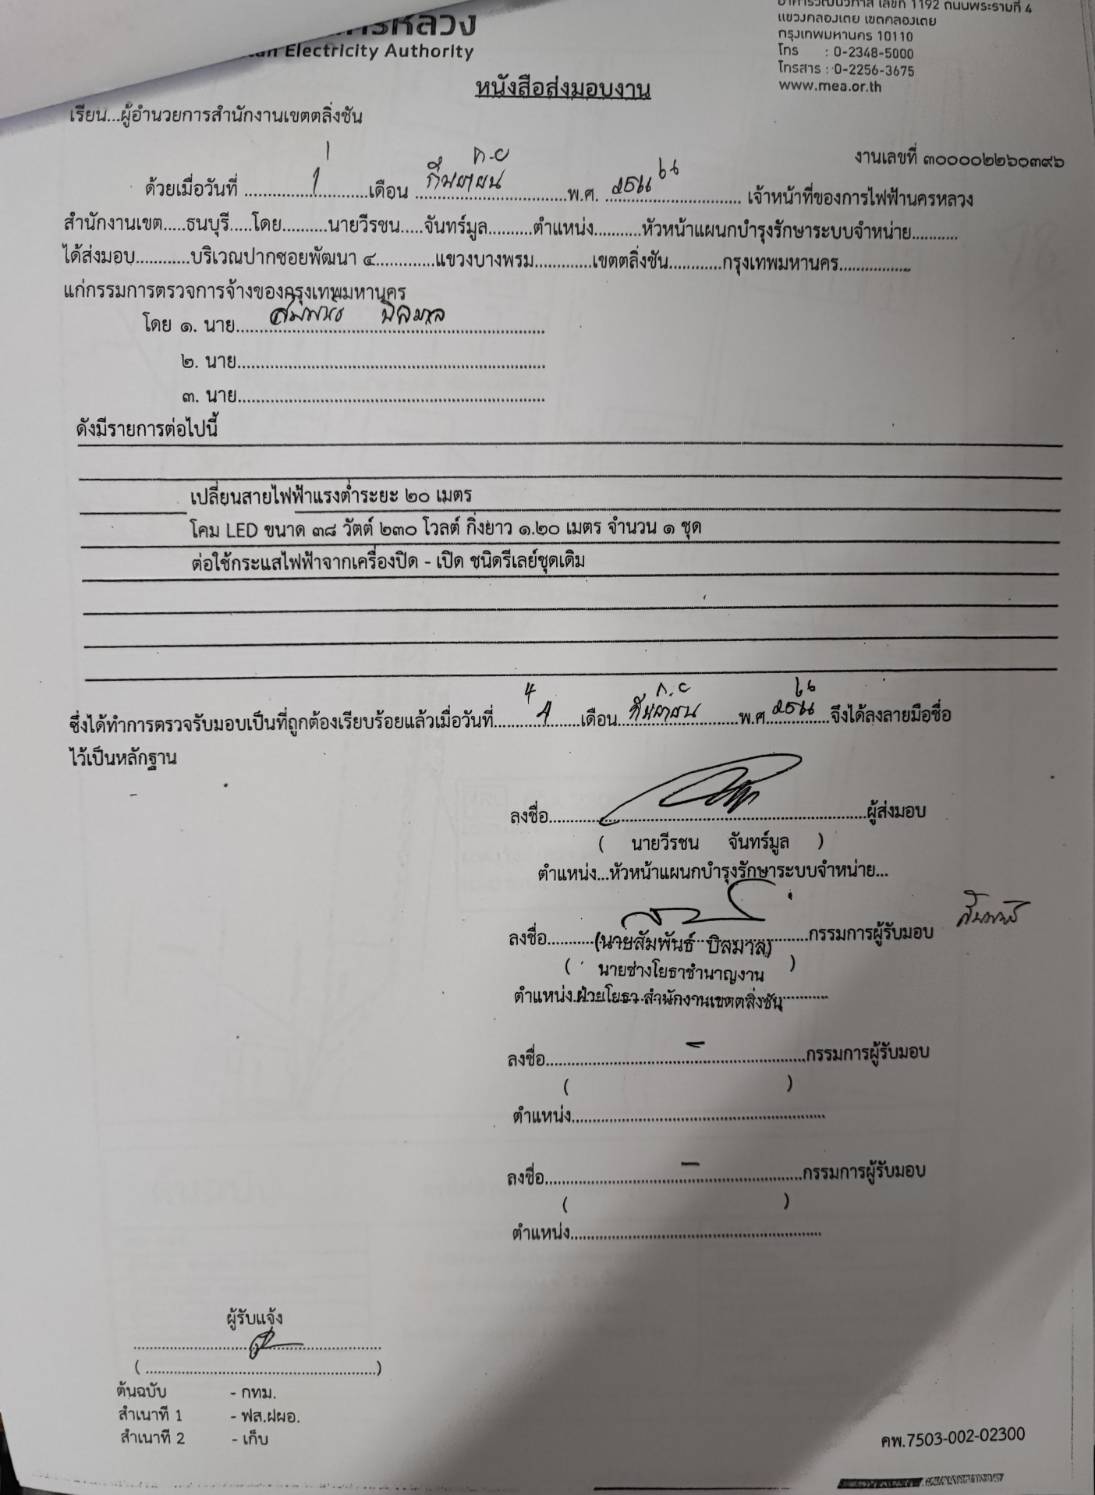 รหลวง
Electricity Authority
เลขที่ 1192 ถนนพระรามที่ 4
แขวงคลองเตย เขตคลองเตย
กรุงเทพมหานคร 10110
โทร : 0-2348-5000
โทรสาร : 0-2256-3675
www.mea.or.th
หนังสือส่งมอบงาน
เรียน...ผู้อำนวยการสำนักงานเขตตลิ่งชัน
งานเลขที่ ๓๐๐๐๐๒๒๖๐๓๙๖
1 ก.ย
ด้วยเมื่อวันที่ ....1....เดือน ....กันยายน....พ.ศ. ........ เจ้าหน้าที่ของการไฟฟ้านครหลวง
สำนักงานเขต.....ธนบุรี.....โดย..........นายวีรชน.....จันทร์มูล..........ตำแหน่ง..........หัวหน้าแผนกบำรุงรักษาระบบจำหน่าย..........
ได้ส่งมอบ............บริเวณปากซอยพัฒนา ๔.............แขวงบางพรม.............เขตตลิ่งชัน............กรุงเทพมหานคร................
แก่กรรมการตรวจการจ้างของกรุงเทพมหานคร
โดย ๑. นาย....สัมพันธ์ บิลมาศ....
๒. นาย................................
๓. นาย................................
ดังมีรายการต่อไปนี้
เปลี่ยนสายไฟฟ้าแรงต่ำระยะ ๒๐ เมตร
โคม LED ขนาด ๓๘ วัตต์ ๒๓๐ โวลต์ กิ่งยาว ๑.๒๐ เมตร จำนวน ๑ ชุด
ต่อใช้กระแสไฟฟ้าจากเครื่องปิด - เปิด ชนิดรีเลย์ชุดเดิม
4 ก.ย
ซึ่งได้ทำการตรวจรับมอบเป็นที่ถูกต้องเรียบร้อยแล้วเมื่อวันที่....4....เดือน....กันยายน....พ.ศ........จึงได้ลงลายมือชื่อ
ไว้เป็นหลักฐาน
ลงชื่อ................................ผู้ส่งมอบ
( นายวีรชน จันทร์มูล )
ตำแหน่ง...หัวหน้าแผนกบำรุงรักษาระบบจำหน่าย...
ลงชื่อ..........(นายสัมพันธ์ บิลมาศ)..........กรรมการผู้รับมอบ สัมพันธ์
( นายช่างโยธาชำนาญงาน )
ตำแหน่ง.ฝ่ายโยธา สำนักงานเขตตลิ่งชัน..........
ลงชื่อ................–................กรรมการผู้รับมอบ
( )
ตำแหน่ง................................
ลงชื่อ................–................กรรมการผู้รับมอบ
( )
ตำแหน่ง................................
ผู้รับแจ้ง
................................
(................................)
ต้นฉบับ - กทม.
สำเนาที่ 1 - ฟส.ฝผอ.
สำเนาที่ 2 - เก็บ
คพ.7503-002-02300